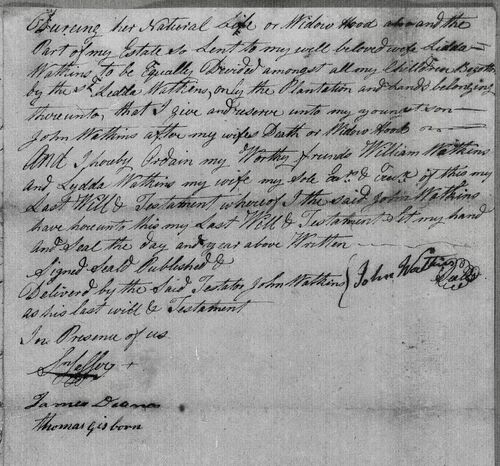 During her Natural Life or Widow Hood and the
Part of my Estate So Lent to my well beloved wife Lidda
Watkins to be Equally Devided amongst all my Children Begotten
by the sd. Ledda Watkins, only the Plantation and Lands belonging
thereunto, that I give and reserve unto my youngest son
John Watkins after my wifes Death or Widow Hood
And I hereby Ordain my Worthy friends William Watkins
and Lydda Watkins my wife my Sole & of this my
Last Will & Testament whereof I the Said John Watkins
have hereunto this my Last Will & Testament Set my hand
and Seal the day and year above Written
Signed Seald Published &
Deliverd by the Said Testator John Watkins John Watkins Seal
as his last will & Testament
In Presence of us
James Deane
thomas gisborn